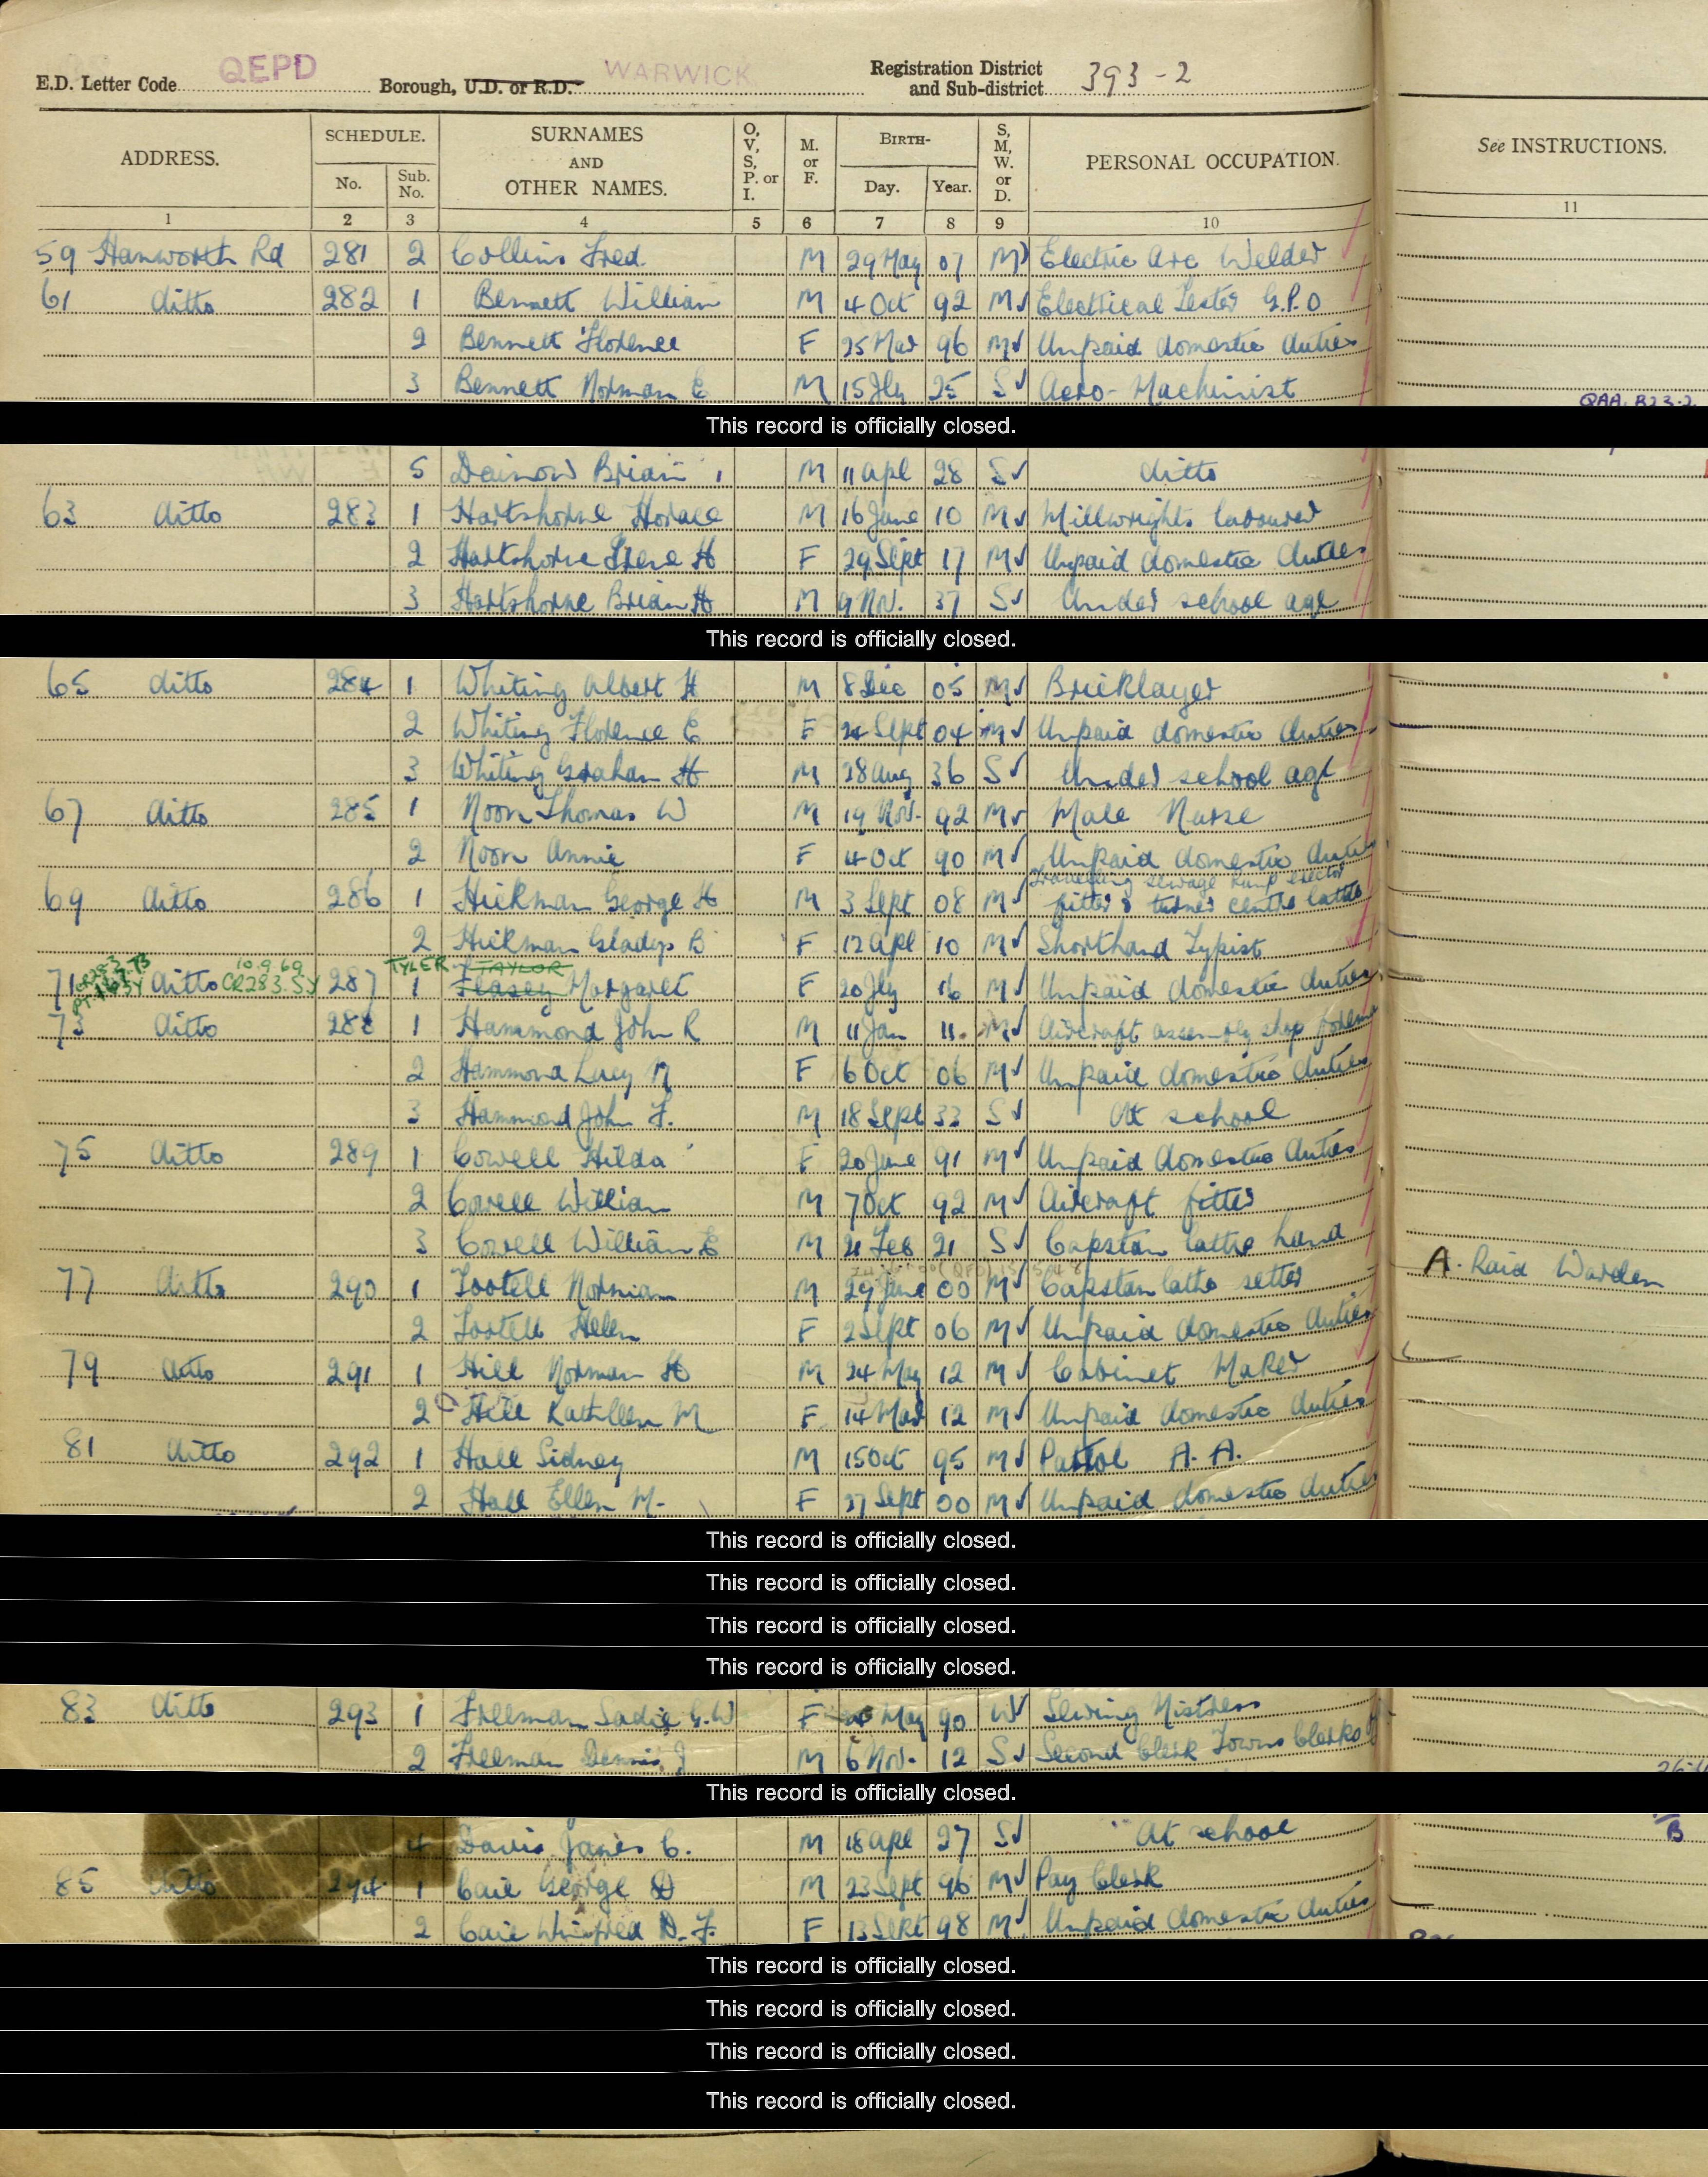 E.D. Letter Code QEPD Borough, U.D. or R.D. WARWICK Registration District and Sub-district 393-2
ADDRESS. SCHEDULE. No. Sub. No. SURNAMES AND OTHER NAMES. O, V, S, P. or I. M. or F. BIRTH- Day. Year. S, M, W. or D. PERSONAL OCCUPATION. See INSTRUCTIONS.
1 2 3 4 5 6 7 8 9 10 11
59 Hanworth Rd 281 2 Collins Fred. M 29 May 07 M Electric Arc Welder
61 ditto 282 1 Bennett William M 4 Oct 92 M Electrical Tester G.P.O
2 Bennett Florence F 25 Mar 96 M Unpaid domestic duties
3 Bennett Norman E M 15 Jly 25 S Aero-Machinist
This record is officially closed.
5 Brian M 11 Apl 28 S ditto
63 ditto 283 1 Hartshorne Horace M 16 June 10 M Millwrights labourer
2 Hartshorne Irene H F 29 Sept 17 M Unpaid domestic duties
3 Hartshorne Brian H M 9 Nov. 37 S Under school age
This record is officially closed.
65 ditto 284 1 Whiting Albert H M 8 Dec 05 M Bricklayer
2 Whiting Florence E F 24 Sept 04 M Unpaid domestic duties
3 Whiting Graham H M 28 Aug 36 S Under school age
67 ditto 285 1 Noon Thomas W M 19 Nov. 92 M Male Nurse
2 Noon Annie F 4 Oct 90 M Unpaid domestic duties
69 ditto 286 1 Hickman George H M 3 Sept 08 M Travelling sewage pump erector fitter & turner centre lathe
2 Hickman Gladys B F 12 Apl 10 M Shorthand Typist
10.9.69 TYLER TAYLOR
71 ditto CR283.SY 287 1 Margaret F 20 Jly 16 M Unpaid domestic duties
73 ditto 288 1 Hammond John R M 11 Jan 11 M Aircraft assembly shop foreman
2 Hammond Lucy M F 6 Oct 06 M Unpaid domestic duties
3 Hammond John F. M 18 Sept 33 S At school
75 ditto 289 1 Cowell Hilda F 20 June 91 M Unpaid domestic duties
2 Cowell William M 7 Oct 92 M Aircraft fitter
3 Cowell William E M 21 Feb 21 S Capstan lathe hand
77 ditto 290 1 Tootell Norman M 29 June 00 M Capstan lathe setter A. Raid Warden
2 Tootell Helen F 2 Sept 06 M Unpaid domestic duties
79 ditto 291 1 Hill Norman H M 24 May 12 M Cabinet Maker
2 Hill Kathleen M F 14 Mar 12 M Unpaid domestic duties
81 ditto 292 1 Hall Sidney M 15 Oct 95 M Patrol A.A.
2 Hall Ellen M. F 27 Sept 00 M Unpaid domestic duties
This record is officially closed.
This record is officially closed.
This record is officially closed.
This record is officially closed.
83 ditto 293 1 Freeman Sadie G.W F May 90 W Sewing Mistress
2 Freeman Dennis J M 6 Nov. 12 S Second Clerk Towns Clerks
This record is officially closed.
4 Davis James C. M 18 Apl 27 S At school
85 ditto 294 1 Cail George D M 23 Sept 96 M Pay Clerk
2 Cail Winifred D.F. F 13 Sept 98 M Unpaid domestic duties
This record is officially closed.
This record is officially closed.
This record is officially closed.
This record is officially closed.